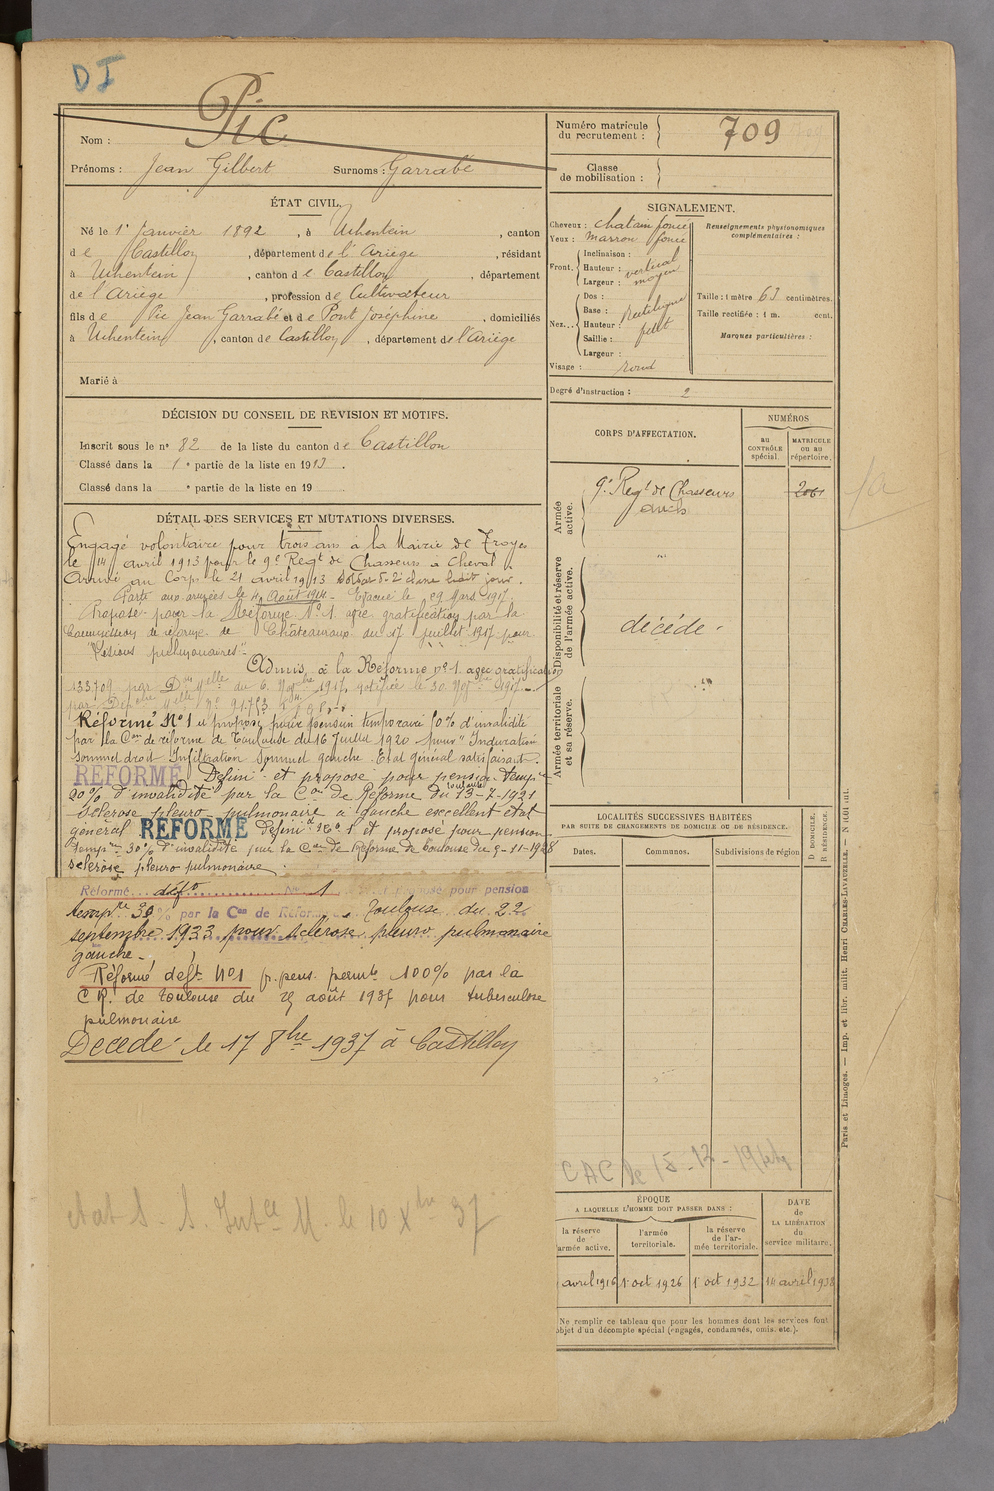 DI
Nom : Pic
Prénoms : Jean Gilbert Surnoms : Garrabé
ÉTAT CIVIL.
Né le 1er Janvier 1892, à Uchentein, canton
de Castillon, département de l'Ariège, résidant
à Uchentein, canton de Castillon, département
de l'Ariège, profession de Cultivateur
fils de Pic Jean Garrabé et de Pont Joséphine, domiciliés
à Uchentein, canton de Castillon, département de l'Ariège
Marié à
DÉCISION DU CONSEIL DE REVISION ET MOTIFS.
Inscrit sous le n° 82 de la liste du canton de Castillon
Classé dans la 1e partie de la liste en 1913.
Classé dans la e partie de la liste en 19
DÉTAIL DES SERVICES ET MUTATIONS DIVERSES.
Engagé volontaire pour trois ans à la Mairie de Troyes
le 14 avril 1913 pour le 9e Regt de Chasseurs à Cheval.
Arrivé au Corps le 21 avril 1913 soldat de 2e classe
Parti aux armées le 4 Août 1914. Evacué le 29 Mars 1917.
Proposé pour la Réforme N° 1 avec gratification par la
Commission de réforme de Châteauroux du 17 juillet 1917 pour
"Lésions pulmonaires".
Admis à la Réforme n° 1 avec gratification
133709 par Don Melle du 6 Novbre 1917, notifiée le 30 Novbre 1917.
Réformé N° 1 et proposé pour pension temporaire 10% d'invalidité
par la Con de réforme de Toulouse du 16 Juillet 1920 pour "Induration
sommet droit Infiltration sommet gauche. Etat général satisfaisant.
REFORMÉ Défini et proposé pour pension temp
20% d'invalidité par la Con de Réforme du Toulouse 13-7-1921
Sclérose pleuro-pulmonaire à gauche excellent état
général REFORMÉ définif N° 1 et proposé pour pension
tempre 30% d'invalidité par la Con de Réforme de Toulouse du 9-11-1928
sclérose pleuro pulmonaire
Réformé défo N° 1 et proposé pour pension
tempre 30% par la Con de Réfor Toulouse du 22
septembre 1933 pour sclérose pleuro pulmonaire
gauche.
Réformé deft N°1 p. pens. permte 100% par la
C.R. de Toulouse du 25 août 1937 pour tuberculose
pulmonaire
Décédé le 17 8bre 1937 à Castillon
etat S. S. Intce M. le 10 Xbre 37
Numéro matricule du recrutement : 709
Classe de mobilisation :
SIGNALEMENT.
Cheveux : chatain foncé
Yeux : marron foncé
Front. Inclinaison : vertical
Hauteur : moyen
Largeur :
Nez... Dos : Rectiligne
Base :
Hauteur : petit
Saillie :
Largeur :
Visage : rond
Renseignements physionomiques complémentaires :
Taille : 1 mètre 63 centimètres.
Taille rectifiée : 1 m. cent.
Marques particulières :
Degré d'instruction : 2
CORPS D'AFFECTATION.
NUMÉROS
AU CONTRÔLE spécial.
MATRICULE ou au répertoire.
Armée active.
9e Regt de Chasseurs 2061
Disponibilité et réserve de l'armée active.
décédé
Armée territoriale et sa réserve.
LOCALITÉS SUCCESSIVES HABITÉES
PAR SUITE DE CHANGEMENTS DE DOMICILE OU DE RÉSIDENCE.
Dates. Communes. Subdivisions de région
D DOMICILE. R RÉSIDENCE.
CAC le 15-12-
ÉPOQUE
A LAQUELLE L'HOMME DOIT PASSER DANS :
la réserve de l'armée active.
l'armée territoriale.
la réserve de l'armée territoriale.
DATE de LA LIBÉRATION du service militaire.
avril 1916 1er oct 1926 1er oct 1932 14 avril 1938
Ne remplir ce tableau que pour les hommes dont les services font
objet d'un décompte spécial (engagés, condamnés, omis, etc.).
Paris et Limoges. — Imp. et libr. milit. Henri CHARLES-LAVAUZELLE.